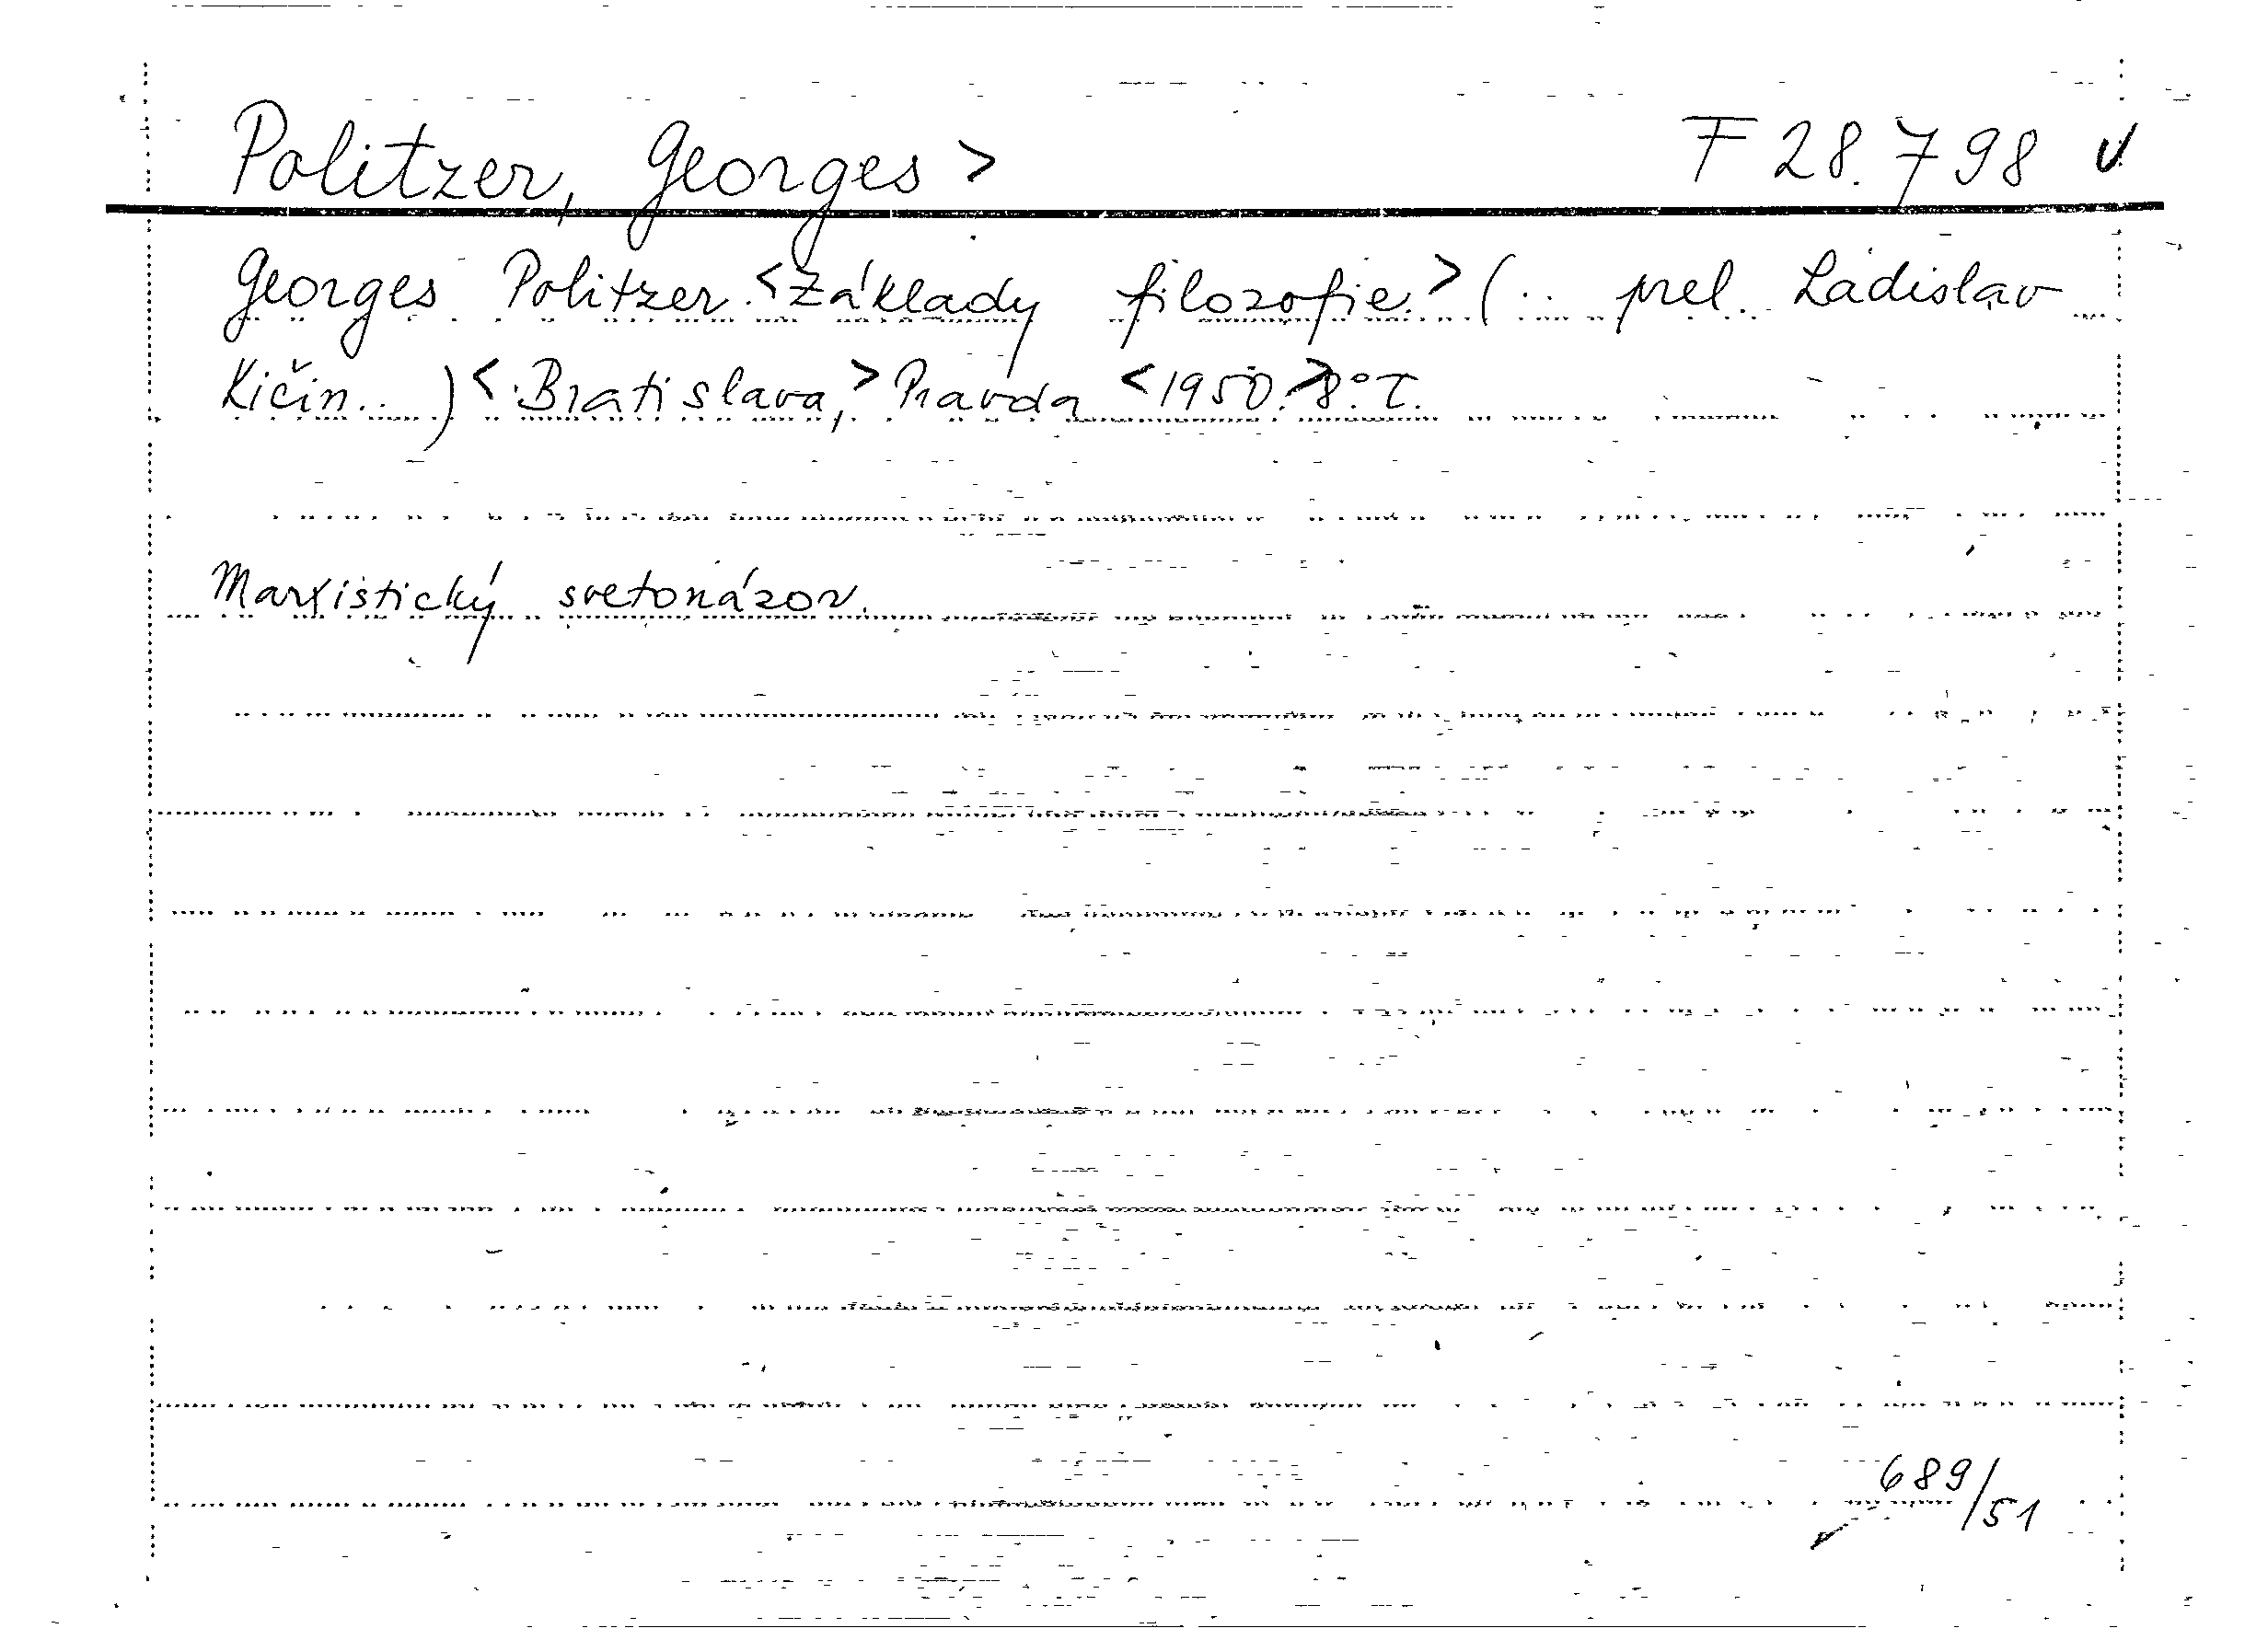 Politzer, Georges > F 28.798 v
Georges Politzer. <Základy filozofie.> (.. prel. Ladislav
Kičin..) < Bratislava, > Pravda <1950.> 8° T.
Marxistický svetonázov.
689/51